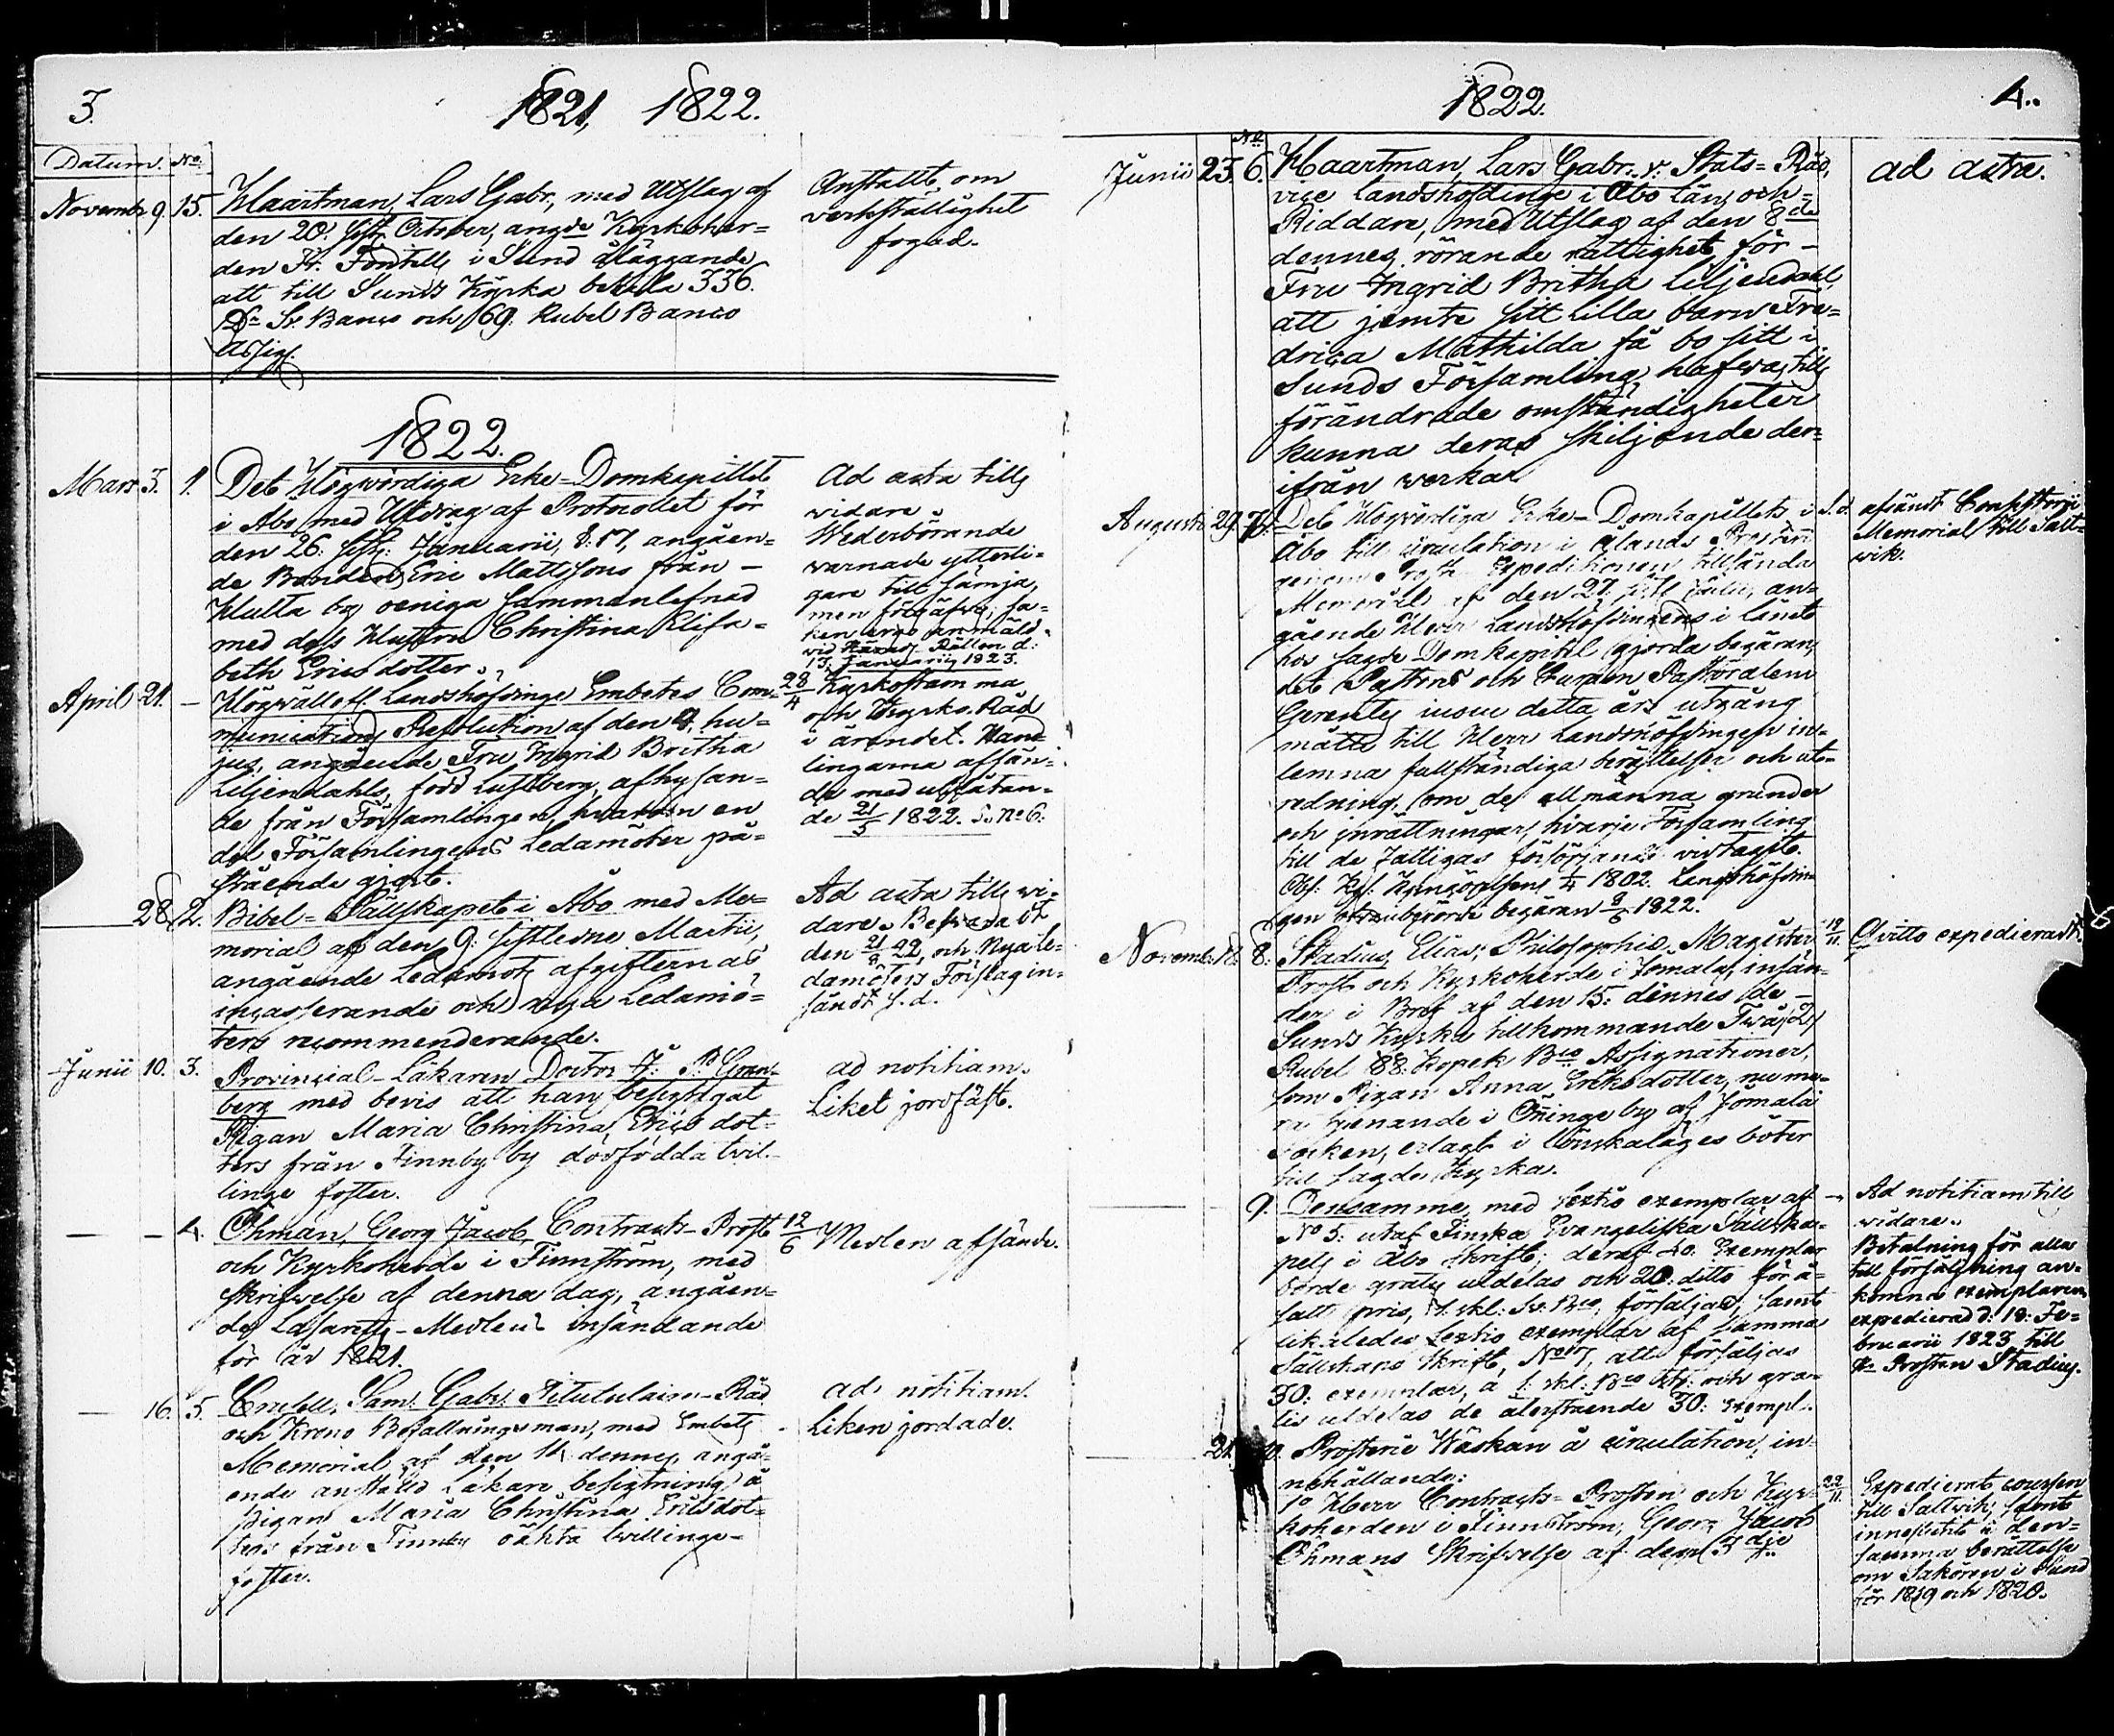 3.
1821, 1822.
Datum. No.
Novembr 9. 15. Haartman, Lars Gabr., med Utslag af
den 20. sistl. October, angde Kyrkoher-
den Fr. Fontells i Sund åläggande
att till Sunds Kyrka betala 336.
Rdr Sv. Banco och 69. Rubel Banco
Assign.
Anstallt om
verkställighet
fogad.
1822.
Mars 3. 1. Det Högvördiga Erke-Domkapitlet
i Åbo med Utdrag af Protocollet för
den 26. sistl. Januarii, §. 17, angåen-
de Bonden Eric Mattssons från -
Hulta by oeniga sammanlefnad
med dess Hustru Christina Elisa-
beth Ericsdotter.
Ad acta tills
widare.
Wederbörande
warnade ytterli-
gare till sämja,
men förgäfves; sa-
ken anmäld
vid Härads Rätten d:
13. Januarii 1823.
April 21. - Högvällofl. Landshöfdinge Embetets Com-
munications Resolution af den 9. hu-
jus, angående Fru Ingrid Britha
Liljendahls, född Lustberg, afhysan-
de från Församlingen, hwarom en
del Församlingens Ledamöter på-
stående gjort.
28/4 Kyrkostämma
och Kyrko-Råd
i ärendet. Hand-
lingarna afsän-
da med utlåtan-
de 21/5 1822. S. No 6.
28. 2. Bibel-Sällskapet i Åbo med Me-
morial af den 9. sistledne Martii,
angående Ledamots afgifternas
incasserande och nya Ledamö-
ters recommenderande.
Ad acta tills wi-
dare. Besvaradt
den 21/8 22, och Nya le-
damöters Förslag in-
sändt s. d.
Junii 10. 3. Provincial-Läkaren Doctor J. P. Gran-
berg med bevis att han besigtigat
Pigan Maria Christina Erics dot-
ters från Finnby by dödfödda twil-
linge foster.
ad notitiam.
Liket jordfäst.
— - 4. Öhman, Georg Jacob, Contracts-Prost
och Kyrkoherde i Finnström, med
skrifwelse af denna dag, angåen-
de Lasaretts-Medlens insändande
för år 1821.
12/6 Medlen afsända.
— 16. 5. Crusell, Sam. Gabr. Titulair-Råd
och Krono Befallningsman, med Embets
Memorial af den 11 dennes, angå-
ende anställd Läkare besigtning å
pigan Maria Christina Ericsdot-
ters från Finnby oäkta twillinge-
foster.
ad notitiam.
Liken jordade.
1822.
4.
No
Junii 23. 6. Haartman, Lars Gabr. v. Stats-Råd,
vice landshöfdinge i Åbo län, och
Riddare, med Utslag af den 8de
dennes rörande rättighet för -
Fru Ingrid Britha Liljendahl,
att jemte sitt lilla barn Fre-
drica Mathilda få bo sitt i
Sunds Församling hafva, tills
förändrade omständigheter
kunna deras skiljande der-
ifrån verka.
ad acta.
Augusti 29. 7. Det Högvördiga Erke-Domkapitlets i
Åbo till circulation i Ålands Prosteri
genom Prosts Expeditionen tillsända
Memorial af den 27. sistl. Julii, an-
gående Herr Landshöfdingens i länet
hos sagde Domkapitel gjorda begäran,
det Pastores och Curam Pastoralem
Gerentes inom detta års utgång
måtte till Herr Landshöfdingen in-
lemna fullständiga berättelser och ut-
redning, om de allmänna grunder
och inrättningar, hvarje Församling
till de fattigas försörjande vidtagit.
1802. Landshöfdin-
gen begäran 1822.
S. d. afsändt Consistorii
Memorial till Salt-
wik.
Novemb. 18. 8. Stadius, Elias, Philosophie Magister
Prost och Kyrkoherde i Jomala, insän-
der i Bref af den 15. dennes de -
Sunds Kyrka tillkommande Twå, 2,
Rubel 88. Kopek Bco Assignationer,
som Pigan Anna Ericsdotter, nu me-
ra tjenande i Önninge by af Jomala
socken, erlagt i lönskaläges böter
till sagde Kyrka.
19/11. Qvitto expedieradt.
— 9. Densamme, med sextio exemplar af
No 5. utaf Finska Evangeliska Sällska-
pets i Åbo skrift; deraf 40. Exemplar
borde gratis utdelas och 20. ditto för å-
satt pris, 1. skl. Sv. Bco, försäljas, samt
likaledes Sextio exemplar af samma
Sällskaps Skrift, No 17, att försäljas
30. exemplar, à 1. skl. Bco St. och gra-
tis utdelas de återstående 30. Exempl.
Ad notitiam till
widare.
Betalning för alla
till försäljning an-
komna exemplaren
expedierad d: 18. Fe-
bruarii 1823 till
Hr Prosten Stadius.
21. 10. Prosterie Wäskan å circulation, in-
nehållande:
1o Herr Contracts-Prosten och Kyr-
koherden i Finnström, Georg Jacob
Öhmans Skrifvelse af den 3dje
22/11. Expedierat coursen
till Saltvik, samt
inneslutit i den-
samma berättelse
om Saköron i Sund
för 1819 och 1820.